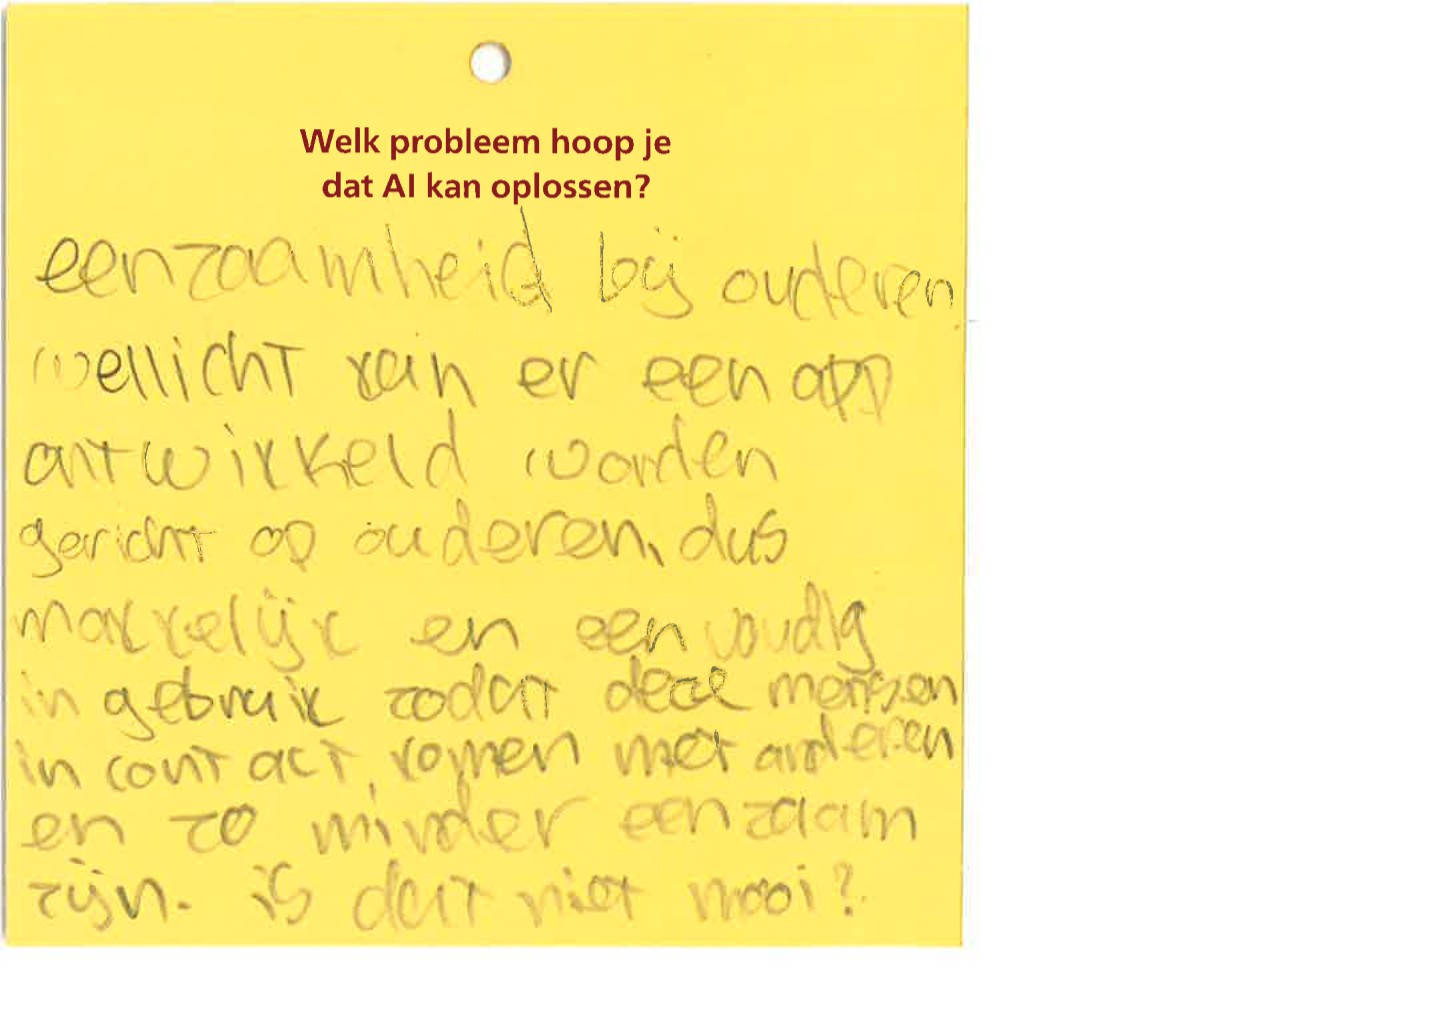 Welk probleem hoop je
dat AI kan oplossen?
eenzaamheid bij ouderen
wellicht kan er een app
ontwikkeld worden
gericht op ouderen, dus
makkelijk en eenvoudig
in gebruik zodat deze mensen
in contact komen met anderen
en zo minder eenzaam
zijn. is dat niet mooi?